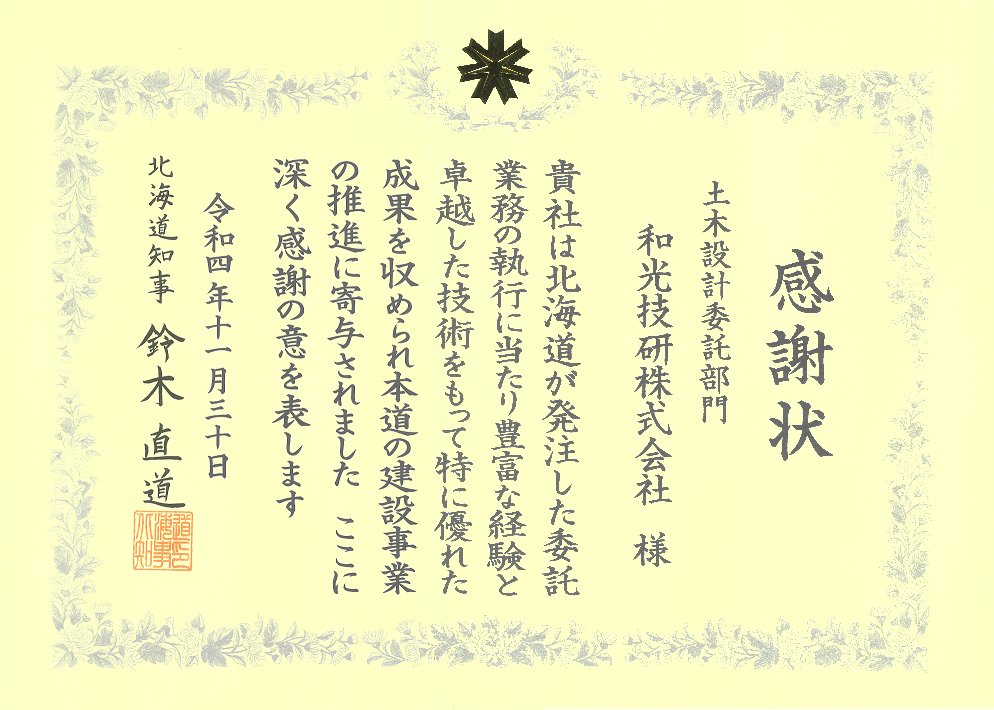 感謝状
土木設計委託部門
和光技研株式会社 様
貴社は北海道が発注した委託
業務の執行に当たり豊富な経験と
卓越した技術をもって特に優れた
成果を収められ本道の建設事業
の推進に寄与されました ここに
深く感謝の意を表します
令和四年十一月三十日
北海道知事 鈴木直道